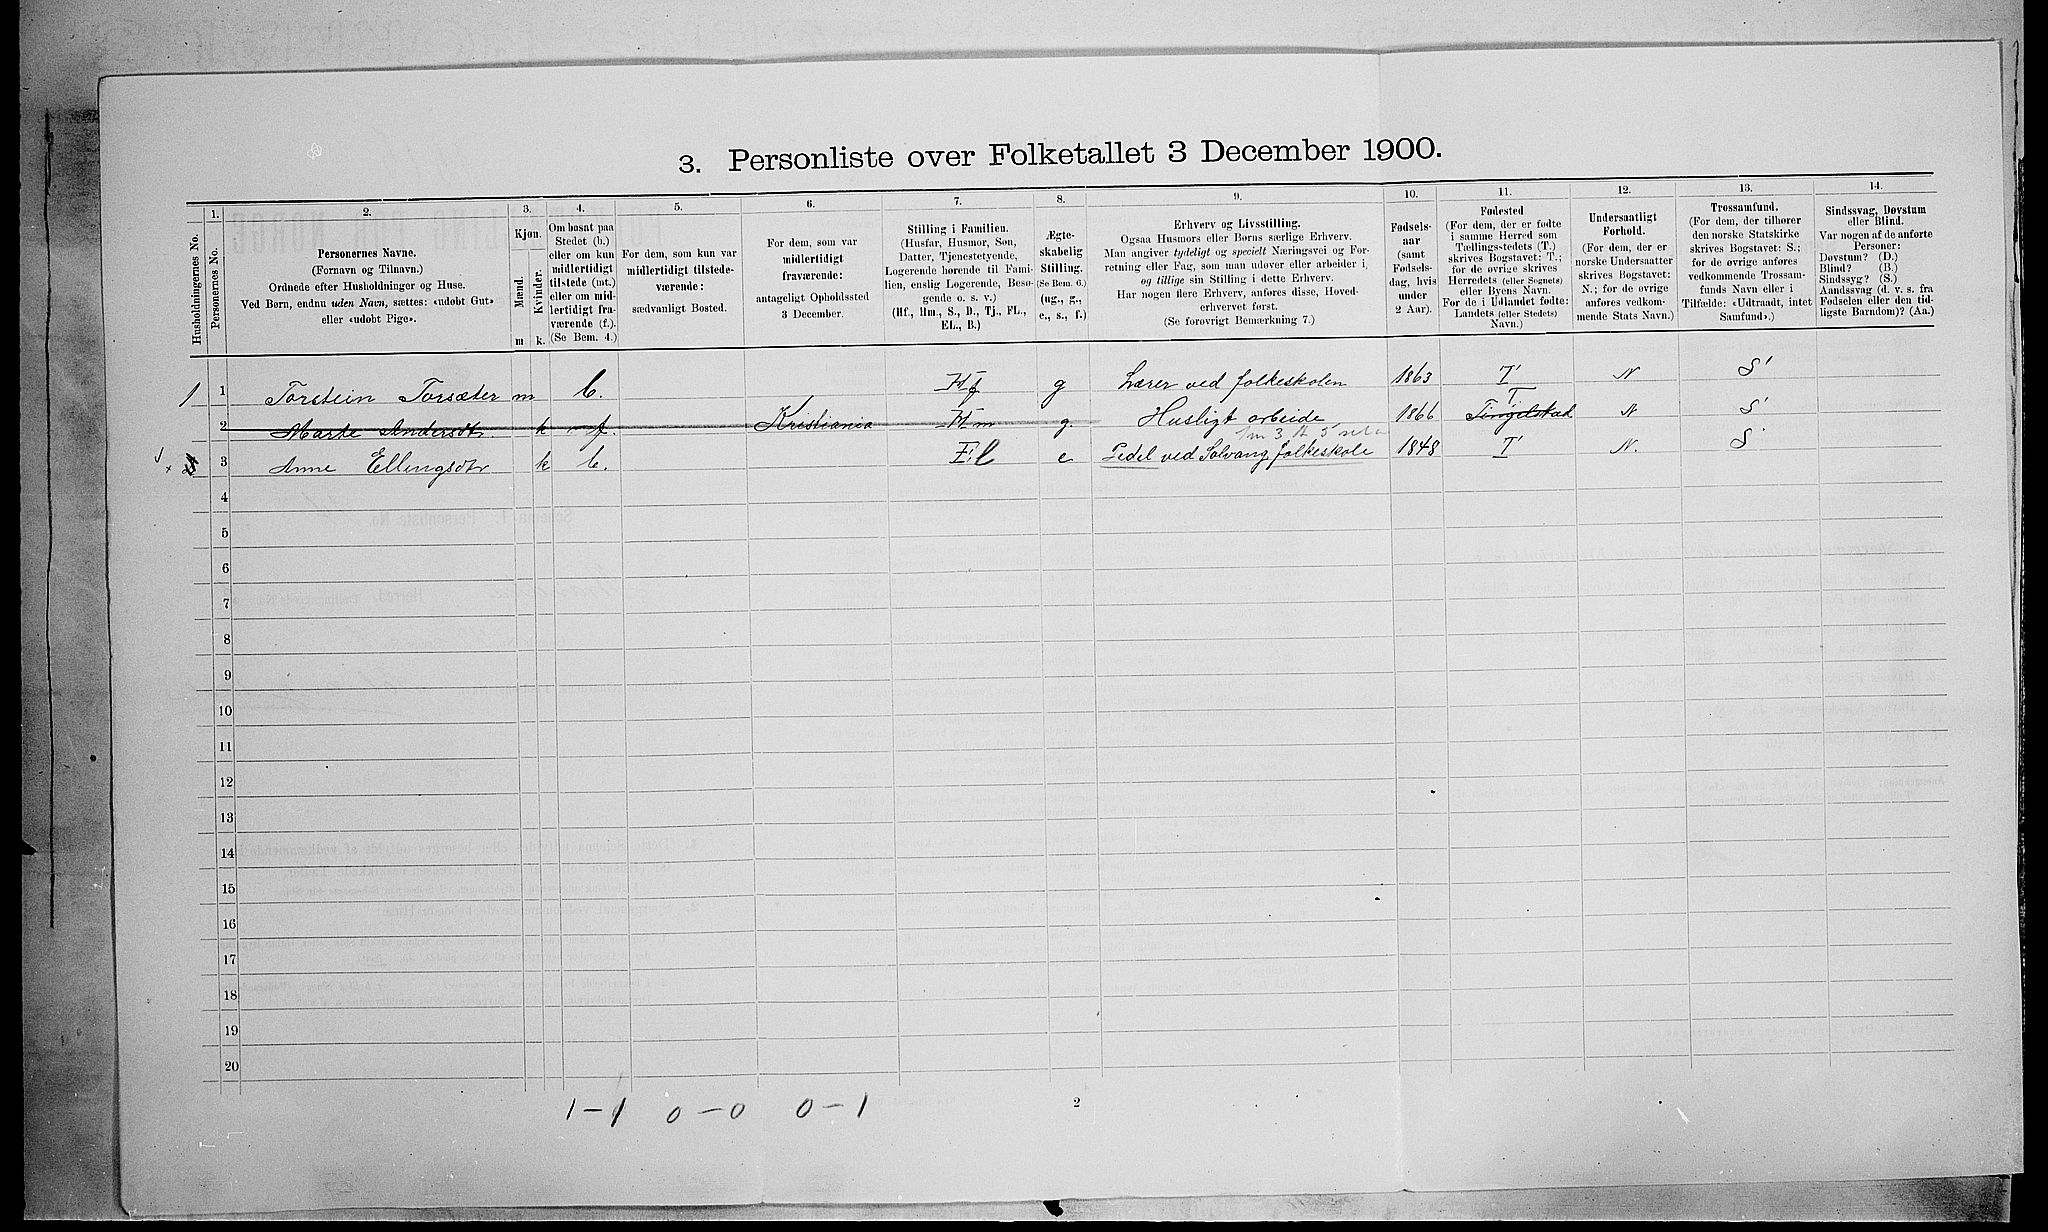 3. Personliste over Folketallet 3 December 1900.
1. 2. 3. 4. 5. 6. 7. 8. 9. 10. 11. 12. 13. 14.
Husholdningernes No.
Personernes No.
Personernes Navne.
(Fornavn og Tilnavn.)
Ordnede efter Husholdninger og Huse.
Ved Børn, endnu uden Navn, sættes: «udøbt Gut»
eller «udøbt Pige».
Kjøn.
Mænd.
Kvinder.
m k.
Om bosat paa
Stedet (b.)
eller om kun
midlertidigt
tilstede (mt.)
eller om mid-
lertidigt fra-
værende (f.)
(Se Bem. 4.)
For dem, som kun var
midlertidigt tilstede-
værende:
sædvanligt Bosted.
For dem, som var
midlertidigt
fraværende:
antageligt Opholdssted
3 December.
Stilling i Familien.
(Husfar, Husmor, Søn,
Datter, Tjenestetyende,
Logerende hørende til Fami-
lien, enslig Logerende, Besø-
gende o. s. v.)
(Hf., Hm., S., D., Tj., FL.,
EL., B.)
Ægte-
skabelig
Stilling.
(Se Bem. 6.)
(ug., g.,
e., s., f.)
Erhverv og Livsstilling.
Ogsaa Husmors eller Børns særlige Erhverv.
Man angiver tydeligt og specielt Næringsvei og For-
retning eller Fag, som man udøver eller arbeider i,
og tillige sin Stilling i dette Erhverv.
Har nogen flere Erhverv, anføres disse, Hoved-
erhvervet først.
(Se forøvrigt Bemærkning 7.)
Fødsels-
aar
(samt
Fødsels-
dag, hvis
under
2 Aar).
Fødested
(For dem, der er fødte
i samme Herred som
Tællingsstedets (T.)
skrives Bogstavet: T.;
for de øvrige skrives
Herredets (eller Sognets)
eller Byens Navn.
For de i Udlandet fødte:
Landets (eller Stedets)
Navn.)
Undersaatligt
Forhold.
(For dem, der er
norske Undersaatter
skrives Bogstavet:
N.; for de øvrige
anføres vedkom-
mende Stats Navn.)
Trossamfund.
(For dem, der tilhører
den norske Statskirke
skrives Bogstavet: S.;
for de øvrige anføres
vedkommende Trossam-
funds Navn eller i
Tilfælde: «Udtraadt, intet
Samfund».)
Sindssvag, Døvstum
eller Blind.
Var nogen af de anførte
Personer:
Døvstum? (D.)
Blind? (B.)
Sindssyg? (S.)
Aandssvag (d. v. s. fra
Fødselen eller den tid-
ligste Barndom)? (Aa.)
1 1 Torstein Torsæter m b. Hf g Lærer ved folkeskolen 1863 T N S
T
2 Marte Andersdtr. k f. Kristiania Hm g Husligt arbeide 1866 Tingelstad N S
3 Anne Ellingsdtr k b. El e Pedel ved Solvang folkeskole 1848 T N. S
4
5
6
7
8
9
10
11
12
13
14
15
16
17
18
19
20
1-1 0-0 0-1
2